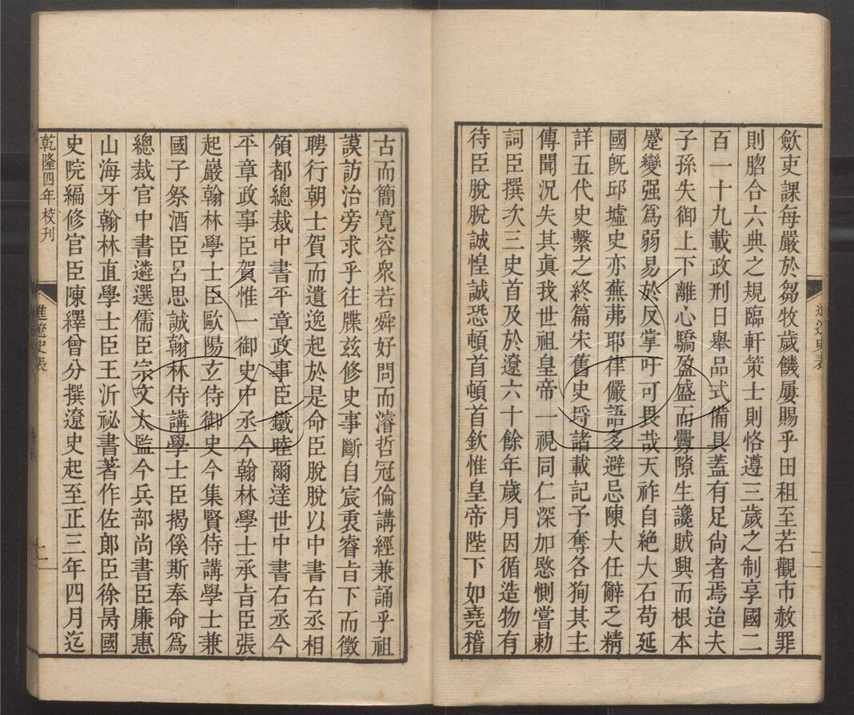 斂吏課每嚴於芻牧歲饑屢賜乎田租至若觀市赦罪
則脗合六典之規臨軒策士則恪遵三歲之制享國二
百一十九載政刑日舉品式備具蓋有足尚者焉迨夫
子孫失御上下離心驕盈盛而釁隙生讒賊興而根本
蹙變强爲弱易於反掌吁可畏哉天祚自絕大石苟延
國旣邱墟史亦蕪茀耶律儼語多避忌陳大任辭乏精
詳五代史繫之終篇宋舊史埓諸載記予奪各狥其主
傳聞況失其眞我世祖皇帝一視同仁深加愍惻嘗勅
詞臣撰次三史首及於遼六十餘年歲月因循造物有
待臣脫脫誠惶誠恐頓首頓首欽惟皇帝陛下如堯稽
進遼史表
古而簡寬容衆若舜好問而濬哲冠倫講經兼誦乎祖
謨訪治旁求乎往牒兹修史事斷自宸衷睿旨下而徵
聘行朝士賀而遺逸起於是命臣脫脫以中書右丞相
領都總裁中書平章政事臣鐵睦爾達世中書右丞今
平章政事臣賀惟一御史中丞今翰林學士承旨臣張
起巖翰林學士臣歐陽玄侍御史今集賢侍講學士兼
國子祭酒臣呂思誠翰林侍講學士臣揭傒斯奉命爲
總裁官中書遴選儒臣宗文太監今兵部尚書臣廉惠
山海牙翰林直學士臣王沂祕書著作佐郞臣徐昺國
史院編修官臣陳繹曾分撰遼史起至正三年四月迄
乾隆四年校刊
進遼史表
二